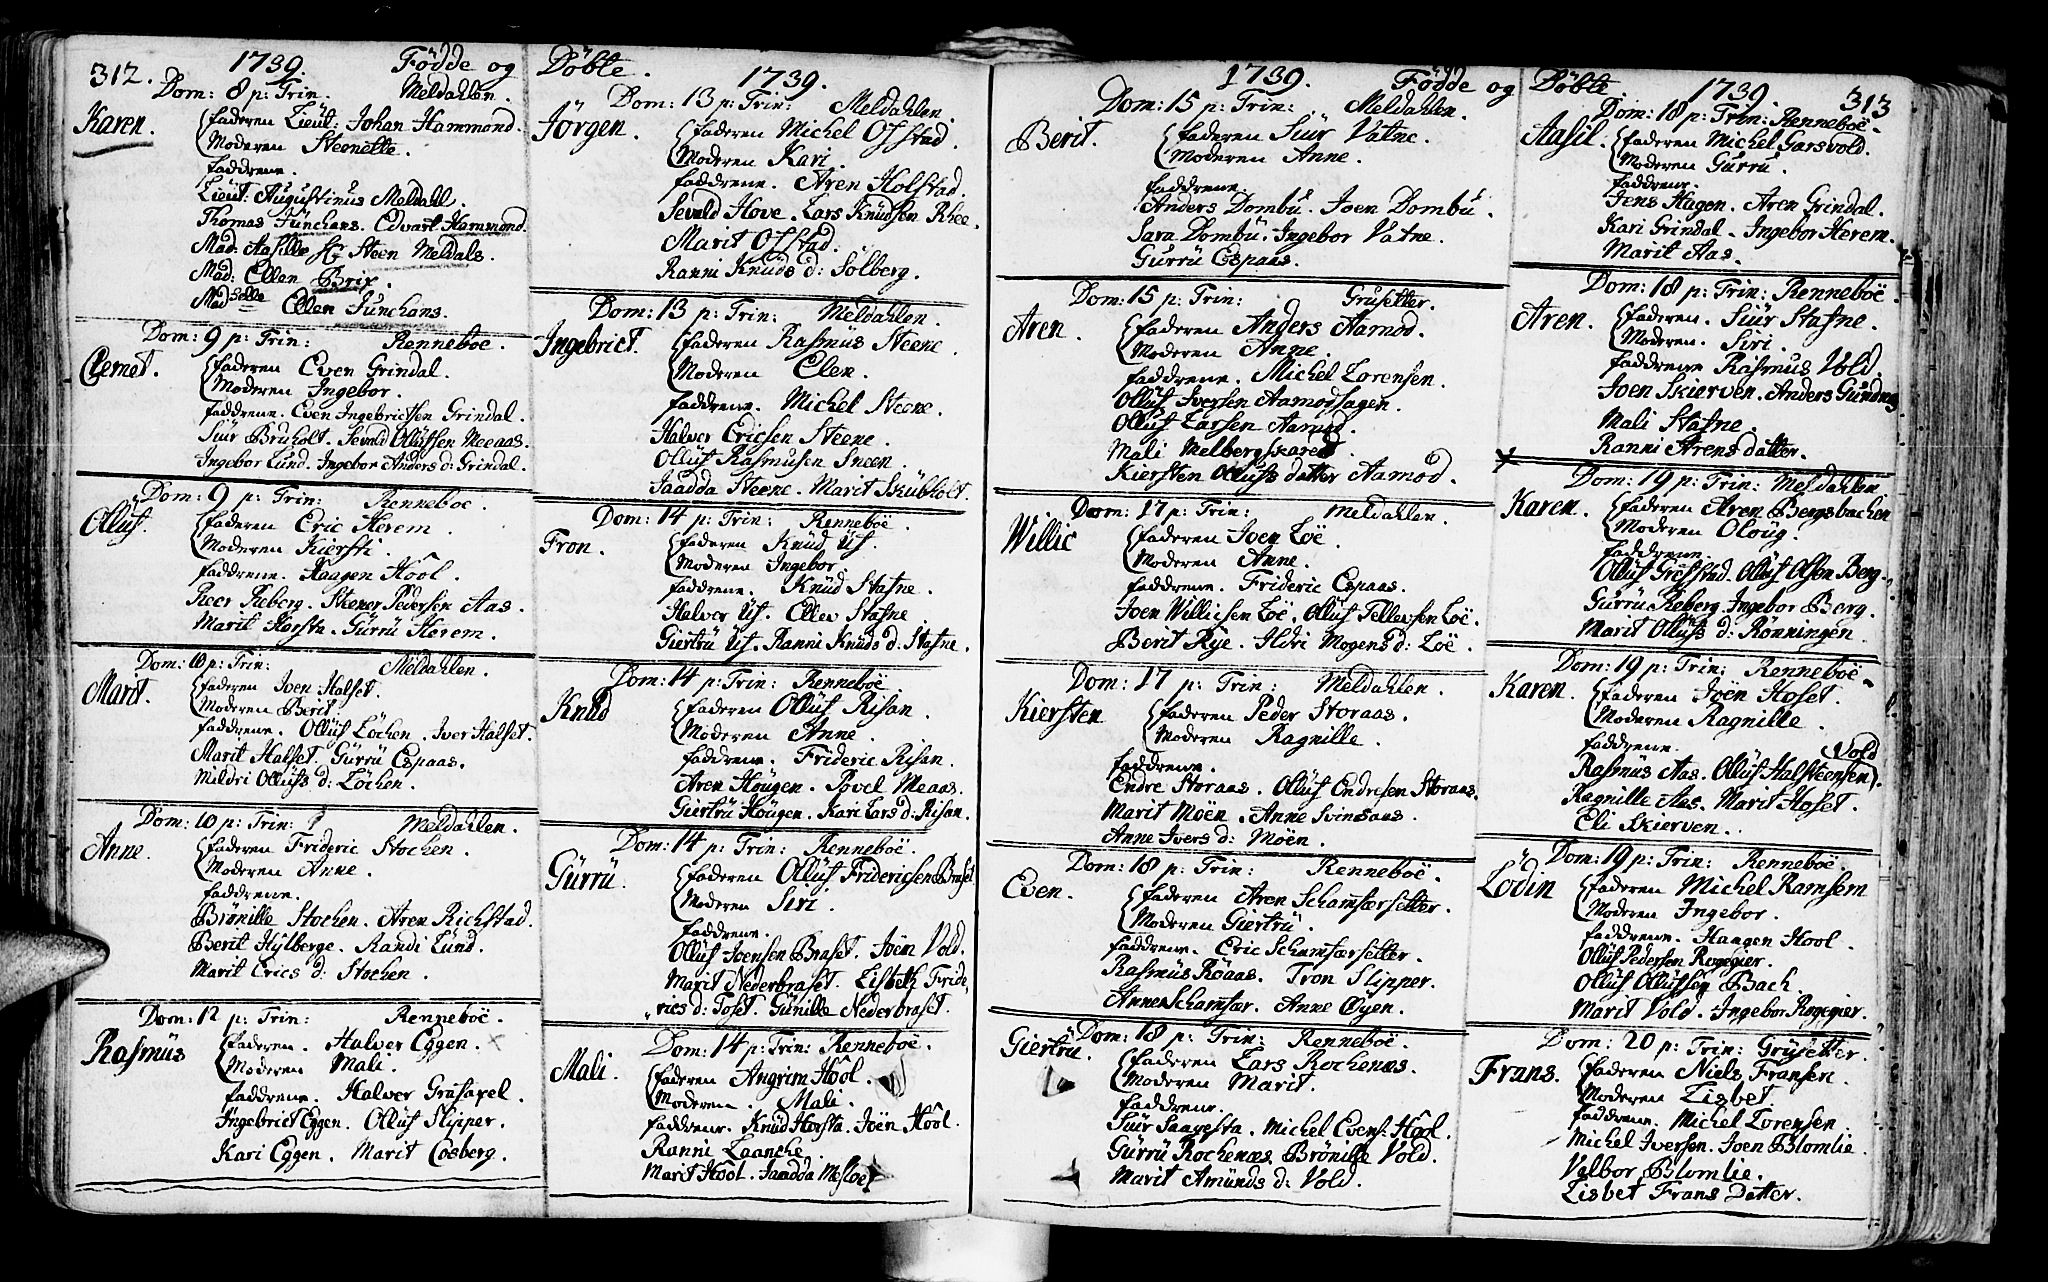 312. 1739. Födde og Döbte. 1739.
Dom: 8 p: Trin. Meldahlen.
Karen. faderen Lieut: Johan Hammond.
Moderen Steenette.
faddrene.
Lieut: Augustinus Meldall.
Thomas Junchans. Edvart Hammond.
Mad: Aasille Sl: Steen Meldals.
Mad: Ellen Brix.
Mad selle Ellen Junchans.
Dom: 9 p: Trin: Renneboe.
Clemet. faderen Even Grindal.
Moderen Ingebor.
faddrene. Even Ingebrictsen Grindal.
Siur Bruholt. Sevald Ollufsen Meeaas.
Ingebor Lund. Ingebor Anders d: Grindal.
Dom: 9 p: Trin: Renneboe.
Olluf. faderen Eric Herem
Moderen Kiersti.
faddrene. Haagen Hool.
Peer Reberg. Steener Pedersen Aas.
Marit Horsta. Gürrü Herem.
Dom: 10 p: Trin: Meldahlen.
Marit. faderen Joen Halset.
Moderen Berit.
faddrene. Olluf Löchen. Iver Halset.
Marit Halset. Gürrü Espaas.
Mildri Ollufs d: Löchen.
Dom: 10 p: Trin: Meldahlen.
Anne. faderen Frideric Stochen.
Moderen Anne.
faddrene.
Brönille Stochen. Aren Richstad.
Berit Hylberge. Randi Lund.
Marit Erics d: Stochen.
Dom: 12 p: Trin: Renneboë.
Rasmüs faderen. Halver Eggen.
Moderen Mali.
faddrene. Halver Grüsavel.
Ingebrict Eggen. Olluf Slipper.
Kari Eggen. Marit Cosberg.
Dom: 13 p: Trin: Meldahlen.
Jörgen. faderen Michel Ofstad.
Moderen Kari.
faddrene. Aren Holstad.
Sevald Hove. Lars Knüdsen Rhee.
Marit Ofstad.
Ranni Knuds d: Solberg.
Dom: 13 p: Trin: Meldahlen.
Ingebrict. faderen Rasmüs Steene.
Moderen Elen.
faddrene. Michel Steene.
Halver Ericsen Steene.
Olluf Rasmusen Sneen.
Jaadda Steene. Marit Skübholt.
Dom: 14 p: Trin: Renneboë.
Tron. faderen Knüd Uf.
Moderen Ingebor.
faddrene. Knüd Stafne.
Halver Uf. Ellev Stafne.
Giertrü Uf. Ranni Knüds d: Stafne.
Dom: 14 p: Trin: Renneboë
Knüd faderen Ollüf Risan.
Moderen Anne.
faddrene. Frideric Risan.
Aren Hougen. Povel Meaas.
Giertrü Hougen. Kari Lars d: Risan.
Dom: 14 p: Trin: Renneboë.
Gürrü. faderen Ollüf Fridericsen Braset
Moderen Siri.
faddrene.
Ollüf Joensen Braset. Joën Vold.
Marit Nederbraset. Lisbeth Fride,
"rics d: Toset. Gunille Nederbraset.
Dom: 14 p: Trin: Renneboë.
Mali. faderen Angrim Hool.
Moderen. Mali.
faddrene. Knüd Horsta. Joën Hool.
Ranni Laanche.
Marit Hool. Jaadda Mesloe
1739. Födde og Döbte 1739. 313
Dom: 15 p: Trin: Meldahlen.
Berit. faderen Siür Vatne.
Moderen Anne.
faddrene.
Anders Dombu. Joen Dombu.
Sara Dombü. Ingebor Vatne.
Gürrü Espaas.
Dom: 15 p: Trin: Grusetter.
Aren. faderen Anders Aamod.
Moderen Anne.
faddrene. Michel Lorensen.
Ollüf Iversen Aamodhagen.
Ollüf Larsen Aamod.
Mali Melbergskaret.
Kiersten Ollufs datter Aamod.
Dom: 17 p: Trin: Meldahlen.
Willic faderen Joen Loë.
Moderen Anne.
faddrene. Frideric Espaas.
Joen Willicsen Loë. Olluf Tellevsen Loë.
Berit Rye. Ildri Mogens d: Loë.
Dom: 17 p: Trin: Meldahlen.
Kiersten faderen Peder Storaas.
Moderen Ragnille.
faddrene.
Endre Storaas. Ollüf Endresen Storaas.
Marit Moën. Anne Svinsaas.
Anne Ivers d: Moën.
Dom: 18 p: Trin: Renneboë.
Even. faderen Aren Schamfærsetter.
Moderen Giertrü.
faddrene. Eric Schamfærsetter.
Rasmüs Röaas. Tron Slipper.
Anne Schamfær. Anne Oyen.
Dom: 18 p: Trin: Renneboë.
Giertrü. faderen Lars Rochenæs.
Moderen Marit.
faddrene.
Siür Saagesta. Michel Evens: Hool.
Gürrü Rochenæs. Brönille Vold.
Marit Amünds d: Vold.
Dom: 18 p: Trin: Renneboë.
Aasil. faderen Michel Garsvold.
Moderen Gurru.
faddrene.
Jens Hagen. Aren Grindal.
Kari Grindal. Ingebor Herem.
Marit Aas.
Dom: 18 p: Trin: Renneboë.
Aren. faderen. Siür Stafne.
Moderen. Siri.
faddrene Rasmus Vold.
Joen Skierven. Anders Gundnes
Mali Stafne.
Ranni Arens datter.
Dom: 19 p: Trin: Meldahlen
Karen. faderen Aren Bergsbachen
Moderen Oloug.
faddrene.
Ollüf Grefstad. Olluf Olsen Berg.
Gürrü Reberg. Ingebor Berg.
Marit Ollüfs d: Rönningen.
Dom: 19 p: Trin: Renneboë.
Karen. faderen Joën Hoset.
Moderen Ragnille.
faddrene. Vold
Rasmüs Aas. Ollüf Halsteensen).
Ragnille Aas. Marit Hoset.
Eli Skierven.
Dom: 19 p: Trin: Renneboë
Lodin faderen Michel Ramsem
Moderen Ingebor.
faddrene. Haagen Hool.
Olluf Pedersen Rogegier.
Olluf Ollufsen Bach.
Marit Vold. Ingebor Rogegier.
Dom: 20 p: Trin: Grusetter.
Frans. faderen Niels Fransen.
Moderen Lisbet.
faddrene. Michel Lorensen.
Michel Iversen. Joen Blomlie.
Valbor Blomlie.
Lisbet Frans Datter.